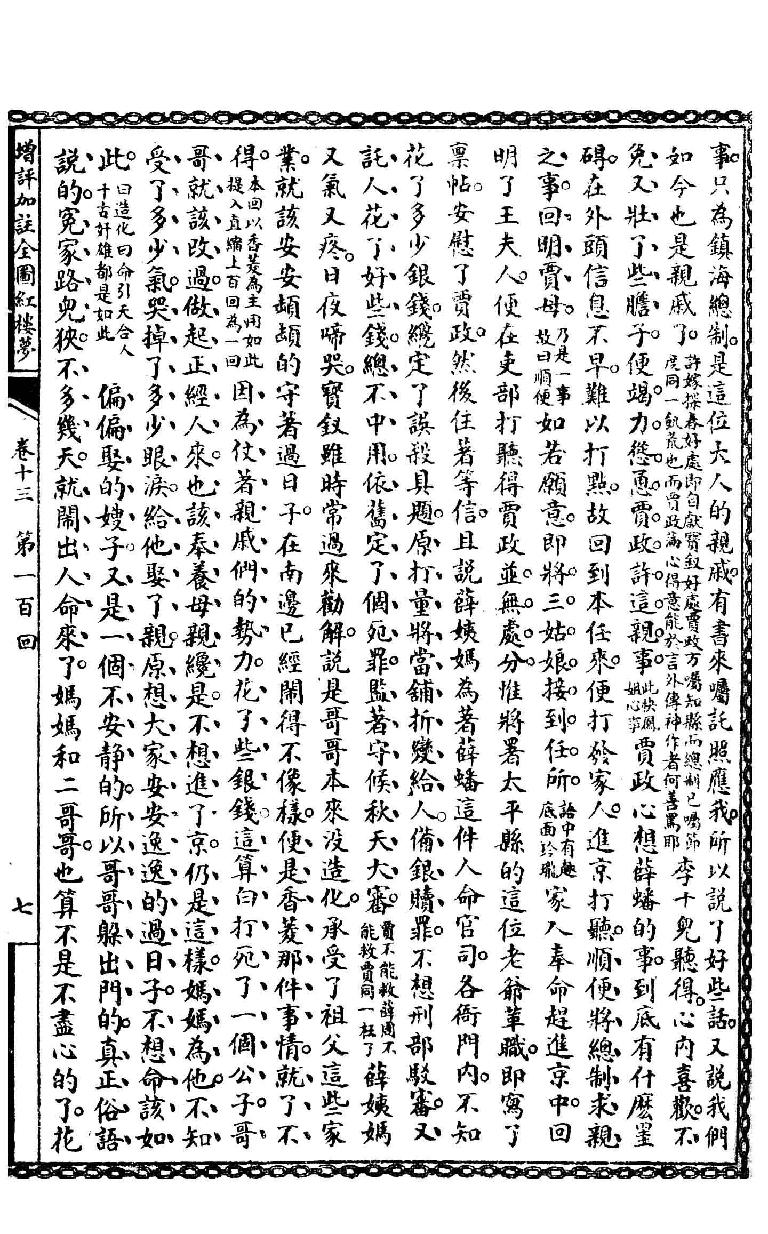 事。只為鎮海總制。是這位大人的親戚。有書來囑託照應我。所以說了好些話。又說我們
如今也是親戚了。許嫁探春好處即自獻寶釵好處賈政方囑知縣而總制已囑節度同一飢荒也而賈政為心得意能於言外傳神作者何善罵耶李十兒聽得。心內喜歡。不
免又壯了些膽子。便竭力慫慂賈政許這親事。此快鳳姐心事賈政心想薛蟠的事。到底有什麼罣
碍。在外頭信息不早。難以打點。故回到本任來。便打發家人進京打聽。順便將總制求親
之事。回明賈母。乃是一事故曰順便如若願意。即將三姑娘。接到任所。語中有趣底面玲瓏家人奉命趕進京中。回
明了王夫人。便在吏部打聽得賈政並無處分。惟將署太平縣的這位老爺革職。即寫了
稟帖。安慰了賈政。然後住著等信。且說薛姨媽為著薛蟠這件人命官司。各衙門內。不知
花了多少銀錢。纔定了誤殺具題。原打量將當鋪折變給人。備銀贖罪。不想刑部駁審。又
託人花了好些錢。總不中用。依舊定了個死罪。監著守候秋天大審。賈不能救薛周不能救賈同一枉了薛姨媽
又氣又疼。日夜啼哭。寶釵雖時常過來勸解。說是哥哥本來沒造化。承受了祖父這些家
業。就該安安頓頓的守著過日子。在南邊已經鬧得不像樣。便是香菱那件事情。就了不
得。本回以香菱為主用如此提入直綰上百回為一回因為仗著親戚們的勢力。花了些銀錢。這算白打死了一個公子。哥
哥就該改過。做起正經人來。也該奉養母親纔是。不想進了京。仍是這樣。媽媽為他。不知
受了多少氣。哭掉了多少眼淚。給他娶了親。原想大家安安逸逸的過日子。不想命該如
此。曰造化曰命引天合人千古奸雄都是如此偏偏娶的嫂子。又是一個不安靜的。所以哥哥躲出門的。真正俗語
說的。冤家路兒狹。不多幾天。就鬧出人命來了。媽媽和二哥哥。也算不是不盡心的了。花
增評加註全圖紅樓夢 卷十三 第一百回 七